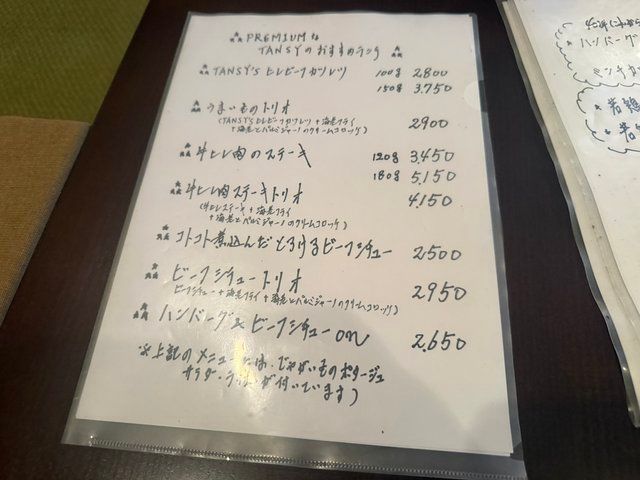 PREMIUMな
TANSYのおすすめランチ
TANSY'S ヒレビーフカツレツ 100g 2800
150g 3.750
うまいものトリオ 2900
(TANSY'S ヒレビーフカツレツ + 海老フライ
+ 海老とパルミジャーノのクリームコロッケ)
牛ヒレ肉のステーキ 120g 3.450
180g 5.150
牛ヒレ肉ステーキトリオ 4.150
(牛ヒレステーキ + 海老フライ
+ 海老とパルミジャーノのクリームコロッケ)
コトコト煮込んだとろけるビーフシチュー 2500
ビーフシチュートリオ 2950
ビーフシチュー + 海老フライ + 海老とパルミジャーノのクリームコロッケ)
ハンバーグ & ビーフシチュー on 2.650
※上記のメニューには、じゃがいものポタージュ
サラダ・ライスが付いています)
ハンバーグ